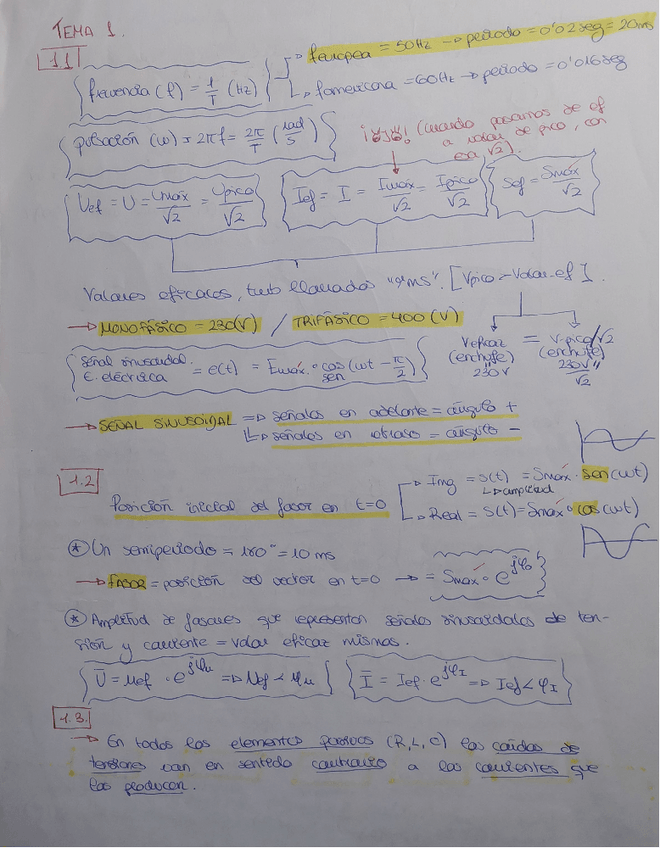 TEMA 1.
1.1
frecuencia (f) = 1/T (Hz)
feuropea = 50Hz → periodo = 0'02seg = 20ms
famericana = 60Hz → periodo = 0'016seg
pulsación (ω) = 2πf = 2π/T (rad/s)
(cuando pasamos de ef
a valor de pico, con
esa √2).
Uef = U = Umáx/√2 = Upico/√2
Ief = I = Imáx/√2 = Ipico/√2
Sef = Smáx/√2
Valores eficaces, tmb llamados "rms". [Vpico - Valor.ef].
→ MONOFÁSICO = 230(V) / TRIFÁSICO = 400(V)
Veficaz (enchufe) 230V = V.pico/√2 (enchufe) 230V/√2
señal sinusoidal E. eléctrica = e(t) = Emáx · cos/sen (ωt - π/2)
→ SEÑAL SINUSOIDAL => señales en adelante = ángulo +
↳ señales en retraso = ángulo -
1.2
Posición inicial del fasor en t=0
Img = s(t) = Smáx · sen(ωt)
↳ amplitud
Real = s(t) = Smáx · cos(ωt)
* Un semiperiodo = 180° = 10 ms
→ FASOR = posición del vector en t=0 → = Smáx · e^jφo
* Amplitud de fasores que representan señales sinusoidales de ten-
sión y corriente = valor eficaz mismas.
Ū = Uef · e^jφu => Uef ∠ φu
Ī = Ief · e^jφI => Ief ∠ φI
1.3.
→ En todos los elementos pasivos (R, L, C) las caídas de
tensiones van en sentido contrario a las corrientes que
las producen.